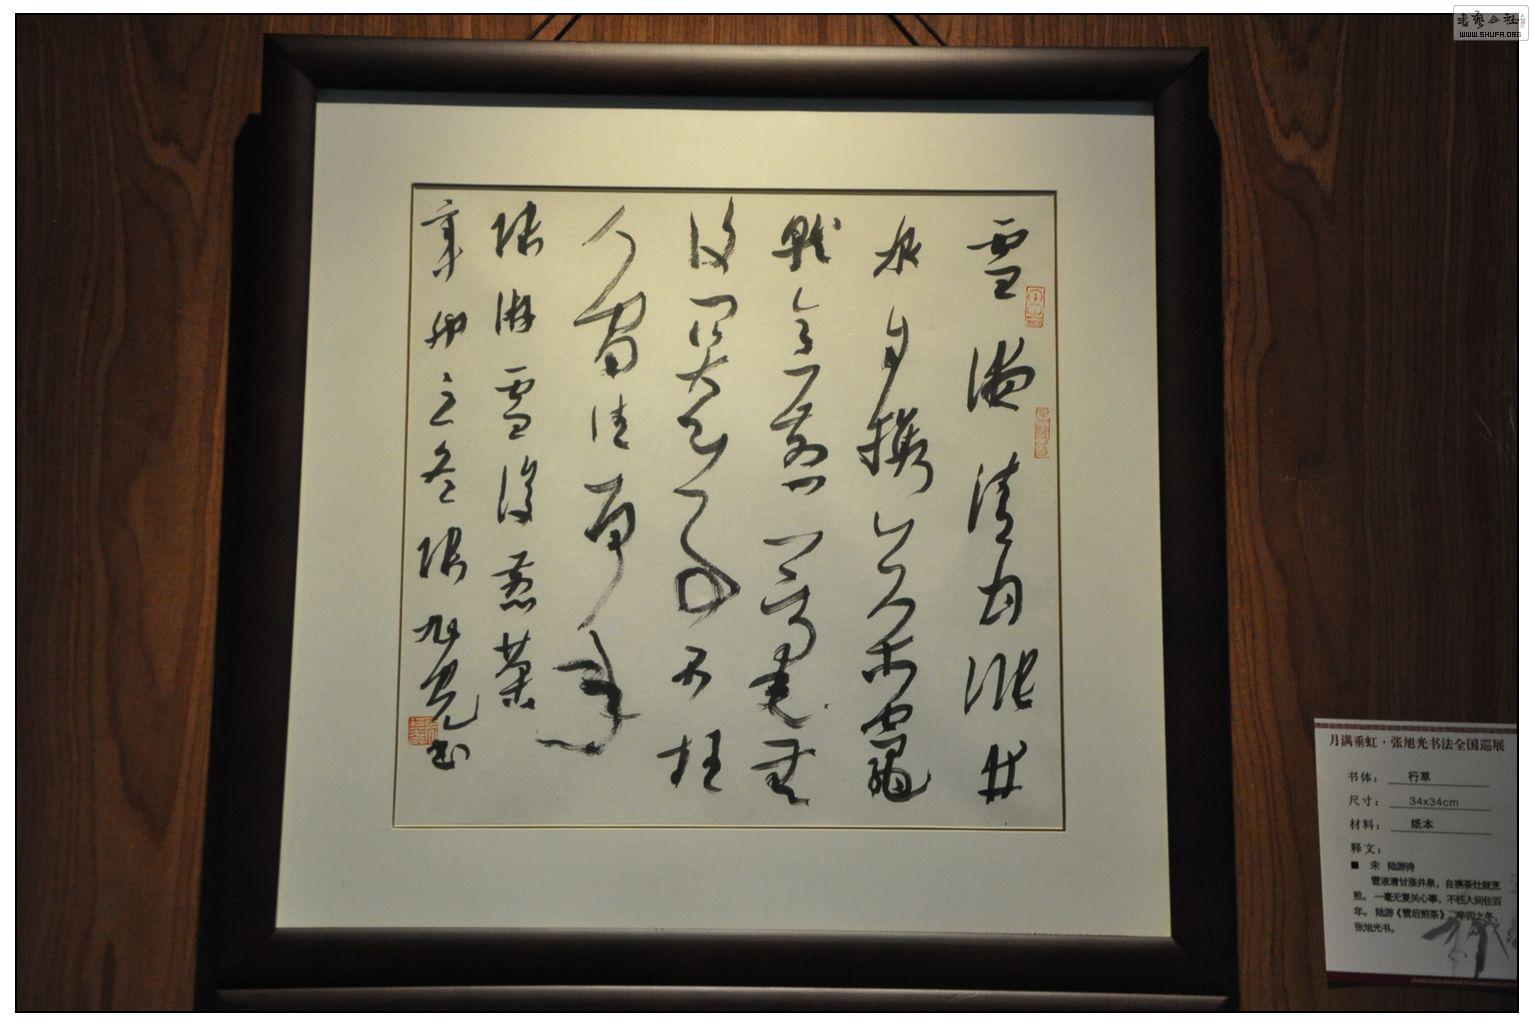 雪液清甘漲井
泉自攜茶竈
就烹煎一毫無
復關心事不枉
人間住百年
陸游雪後煎茶
辛卯之冬張旭光書
月满垂虹·张旭光书法全国巡展
书体： 行草
尺寸： 34x34cm
材料： 纸本
释文：
■ 宋 陆游诗
雪液清甘涨井泉，自携茶灶就烹
煎。一毫无复关心事，不枉人间住百
年。陆游《雪后煎茶》，辛卯之冬，
张旭光书。
WWW.SHUFA.ORG